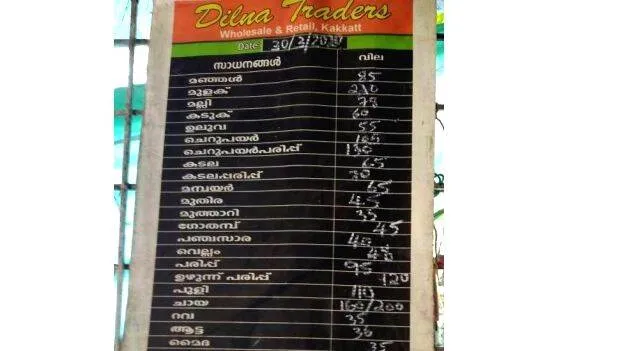 Dilna Traders
Wholesale & Retail, Kakkatt
Date: 30/3/20
സാധനങ്ങൾ വില
മഞ്ഞൾ 85
മുളക് 210
മല്ലി 78
കടുക് 60
ഉലുവ 55
ചെറുപയർ
ചെറുപയർപരിപ്പ് 130
കടല 65
കടലപ്പരിപ്പ് 70
മമ്പയർ 65
മുതിര 45
മുത്താറി 35
ഗോതമ്പ് 45
പഞ്ചസാര 40
വെല്ലം
പരിപ്പ് 95
ഉഴുന്ന് പരിപ്പ് 120
പുളി 110
ചായ 160/200
റവ 35
ആട്ട 36
മൈദ 35